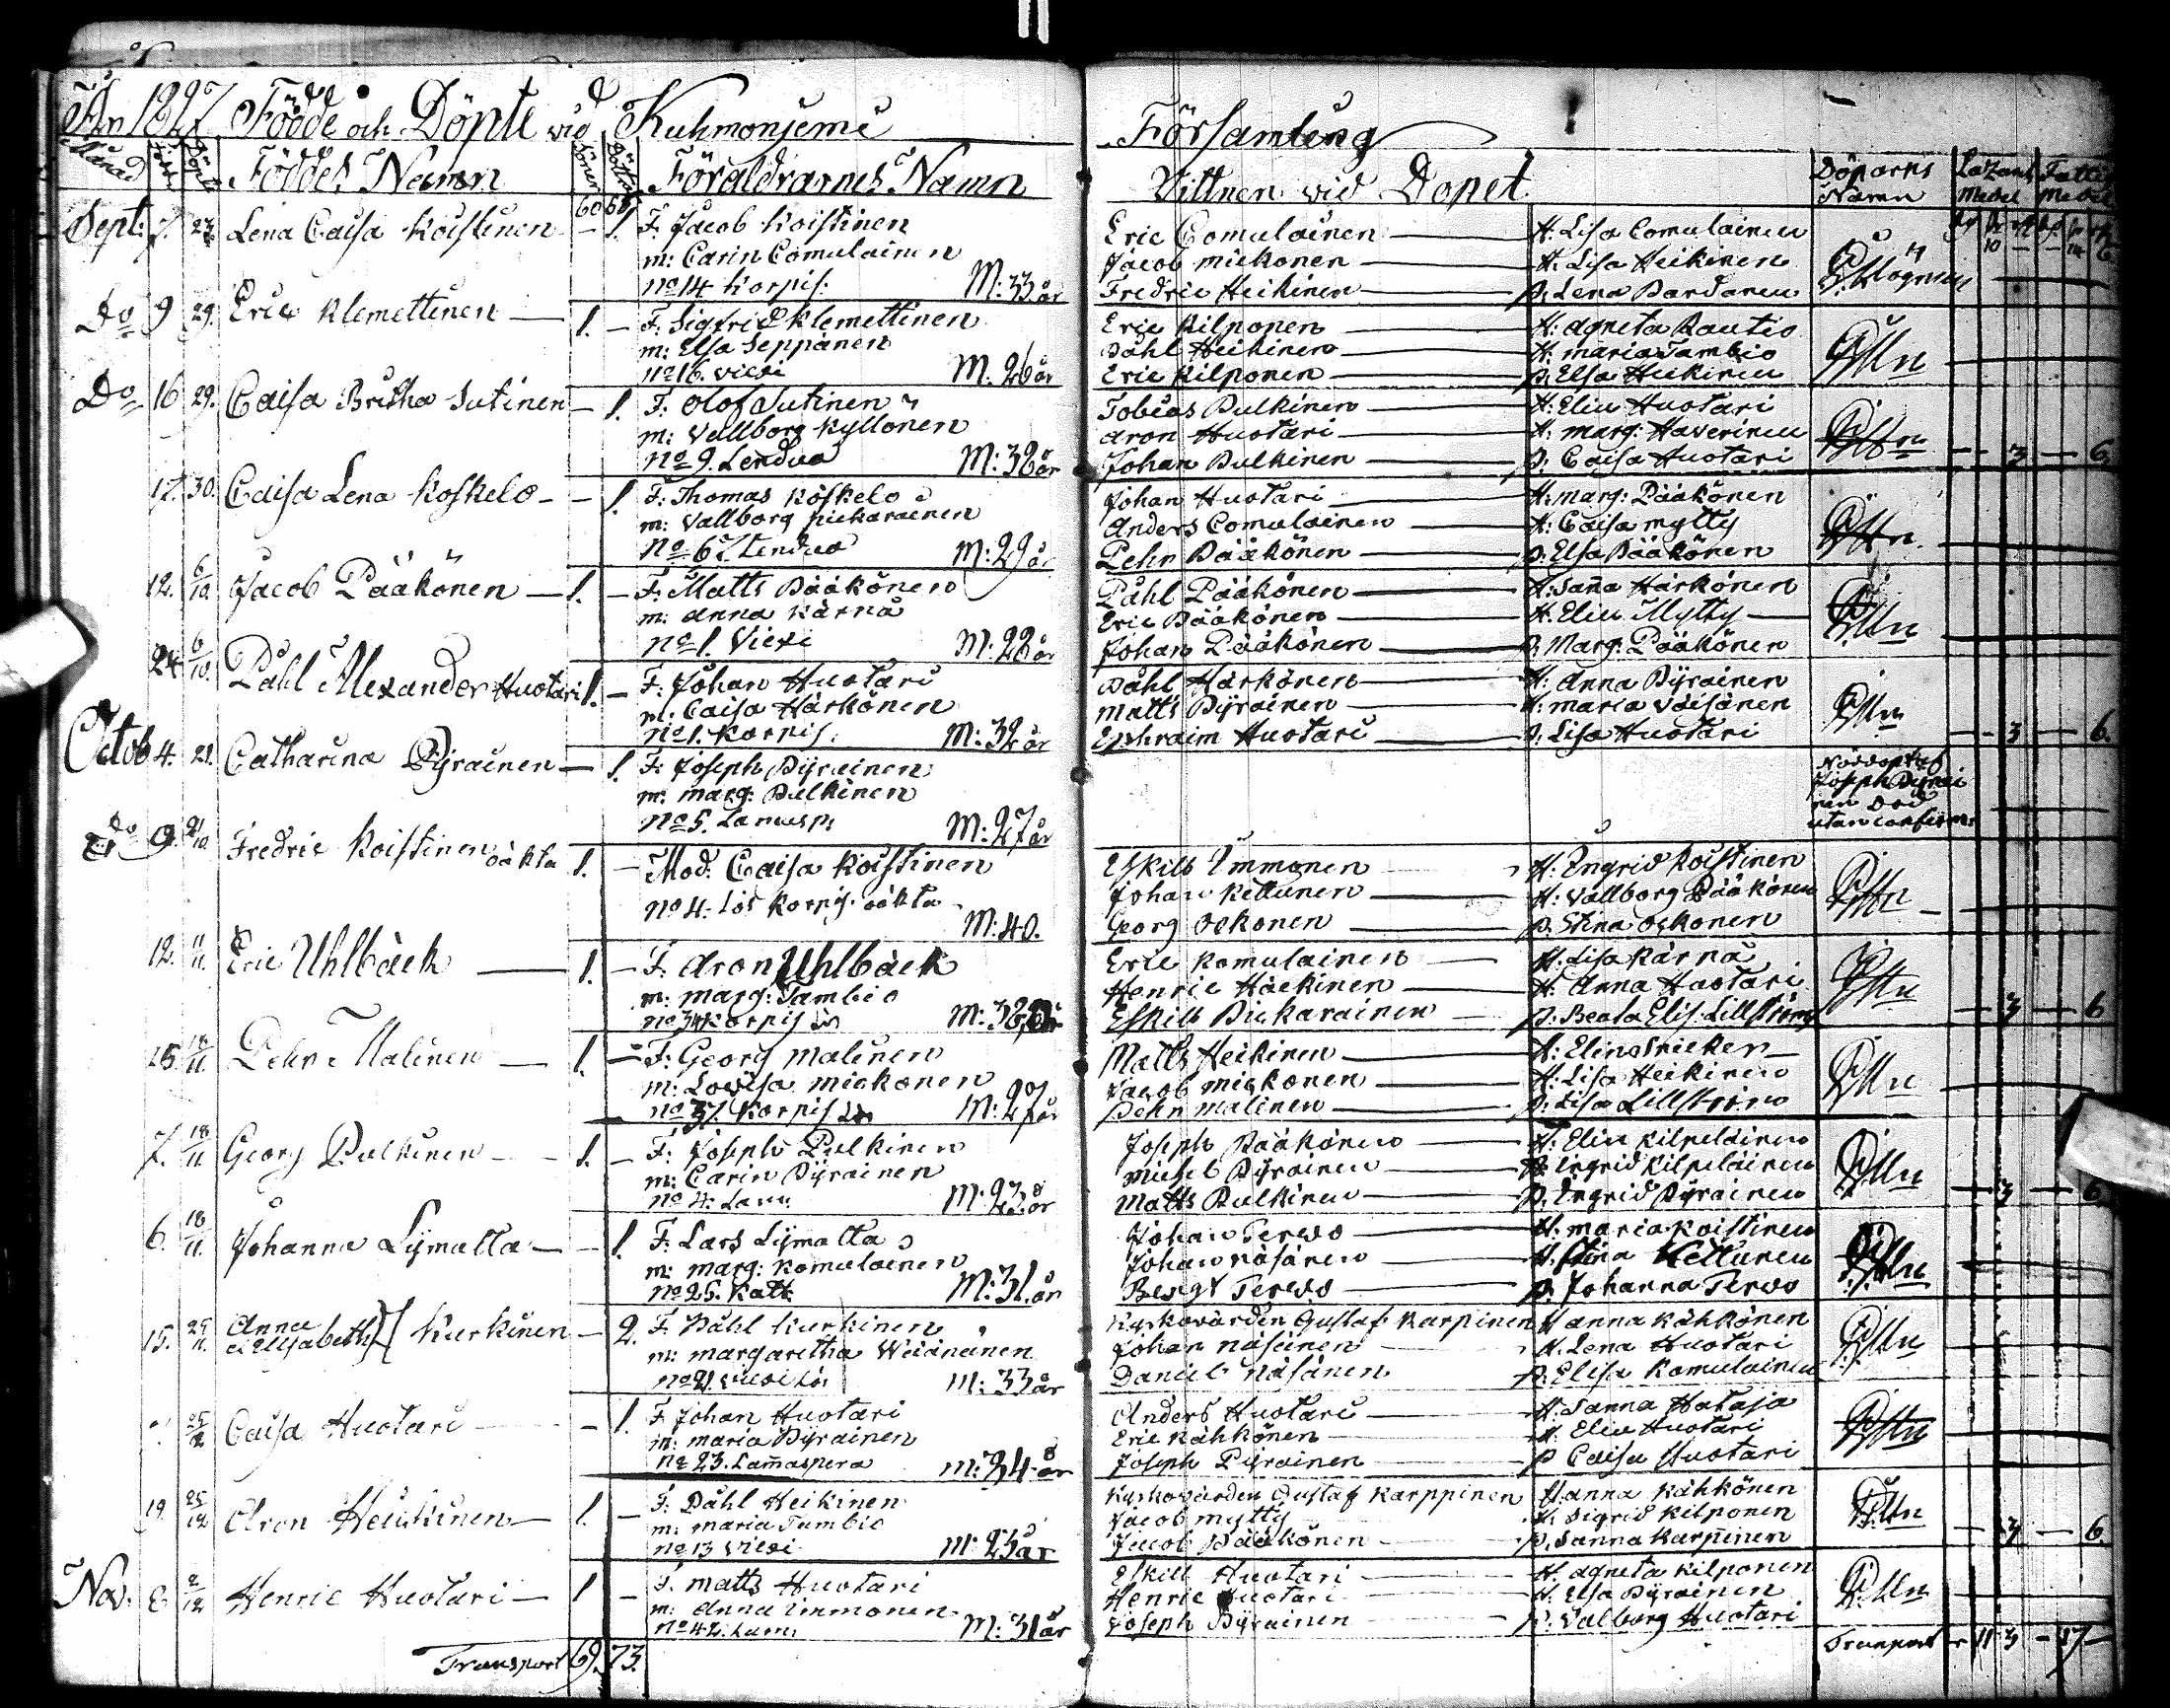 År 1827 Födde och Döpte vid Kuhmonjemi Församling
Månad Födde Döpte Föddes Namn Söner Döttrar Föräldrarnes Namn Vittnen vid Dopet Döparns Namn Lazarets Medel Fattig Medel
Sept: 7. 23 Lena Caisa Koistinen - 1. F. Jacob Koistinen
m: Carin Comulainen
No 14 Korpis: M: 33 år
Eric Comulainen H. Lisa Comulainen
Jacob Mickonen H. Lisa Heikinen
Fredric Heikinen p. Lena Pardanen
Do 9 29. Eric Klemettinen 1. - F. Sigfrid Klemettinen
m: Elsa Seppänen
No 16. Viexi M. 26 år
Eric Kilponen H: Agneta Rautio
Påhl Heikinen H: Maria Tambio
Eric Kilponen p. Elsa Heikinen
Do 16 29. Caisa Britha Sutinen - 1. F: Olof Sutinen
m: Vallborg Kyllönen
No 9. Lendua M: 32 år
Tobias Pulkinen H: Elin Huotari
Aron Huotari H: Marg: Haverinen
Johan Pulkinen p: Caisa Huotari
3 6
17. 30. Caisa Lena Koskelo - 1. F: Thomas Koskelo
m: Vallborg Pickarainen
No 67 Lendua M: 29 år
Johan Huotari H: Marg: Pääkönen
Anders Comulainen H: Caisa Mytty
Pehr Pääkönen p: Elsa Pääkönen
12. 6/10. Jacob Pääkönen 1. - F. Matts Pääkönen
m: Anna Kärnä
No 1. Viexi M: 28 år
Påhl Pääkönen H: Sanna Härkönen
Eric Pääkönen H. Elin Mytty
Johan Pääkönen p. Marg: Pääkönen
24 6/10. Påhl Alexander Huotari 1. - F. Johan Huotari
m: Caisa Härkönen
No 1. Korpis: M: 32 år
Påhl Härkönen H: Anna Pyrainen
Matts Pyrainen H: Maria Väisänen
Ephraim Huotari p. Lisa Huotari
3 6.
Octob 4. 21. Catharina Pyrainen - 1. F. Joseph Pyrainen
m: Marg: Pulkinen
No 5. M: 27 år
Nöddöpt af
Joseph
nen Död
utan confirm:
Do 9. 21/10 Fredric Koistinen oäkta 1. - Mod: Caisa Koistinen
No 4. lös Korpis: oäkta
M: 40.
Eskill Immonen H. Ingrid Koistinen
Johan Kettunen H: Vallborg Pääkönen
Georg Ockonen p. Stina Ockonen
12. 11/11. Eric Uhlbäck 1. - F. Aron Uhlbäck
m: Marg: Tambio
No 34 Korpis
Eric Komulainen H. Lisa Kärnä
Henric Häckinen H: Anna Huotari
Eskill Pickarainen p. Beata Elis. Lillström
3 6
15 18/11. Pehr Malinen 1. - F: Georg Malinen
m: Lovisa Mickonen
No 37. Korpis M: 27 år
Matts Heikinen H: Elin
Jacob Mickonen H: Lisa Heikinen
Pehr Malinen p: Lisa Lillström
7. 18/11 Georg Pulkinen 1. - F: Joseph Pulkinen
m: Carin Pyrainen
No 4. Lam: M: 23. år
Joseph Pääkönen H. Elin Kilpeläinen
Michel Pyrainen H Ingrid Kilpeläinen
Matts Pulkinen p. Ingrid Pyrainen
3 6
6. 18/11. Johanna Lymatta - 1. F. Lars Lymatta
m: Marg: Komulainen
No 25. M: 31. år
Johan Tervo H. Maria Koistinen
Johan Näsänen H. Stina Kettunen
Bengt Tervo p. Johanna Tervo
15. 25/11. Anna Elisabeth Kurkinen - 2. F. Påhl Kurkinen
m: Margaretha Weiänänen
No 21. Viexi M: 33 år
Kyrkovärden Gustaf Karpinen H Anna Kähkönen
Johan Näsänen H. Lena Huotari
Daniel Näsänen p. Elisa Komulainen
Caisa Huotari - 1. F. Johan Huotari
m: Maria Pyrainen
No 23. Lam̄aspera M: 34 år
Anders Huotari H. Sanna Hataja
Eric Kähkönen H: Elin Huotari
Joseph Pyrainen p Caisa Huotari
19. 25/12 Aron Heikinen 1. - F. Påhl Heikinen
m: Maria Tambio
No 13 Viexi M: 23 år
Kyrkovärden Gustaf Karppinen H. Anna Kähkönen
Jacob Mytty H. Sigrid Kilponen
Jacob Pääkönen p. Sanna Karpinen
3 6.
Nov. 8. 2/12 Henric Huotari 1 - F. Matts Huotari
m: Anna Immonen
No 42. Lam: M: 31 år
Eskill Huotari H. Agneta Kilponen
Henric Huotari H. Elsa Pyrainen
Joseph Pyrainen p. Valborg Huotari
Transport 69. 73. Transport 11 3 - 17 -